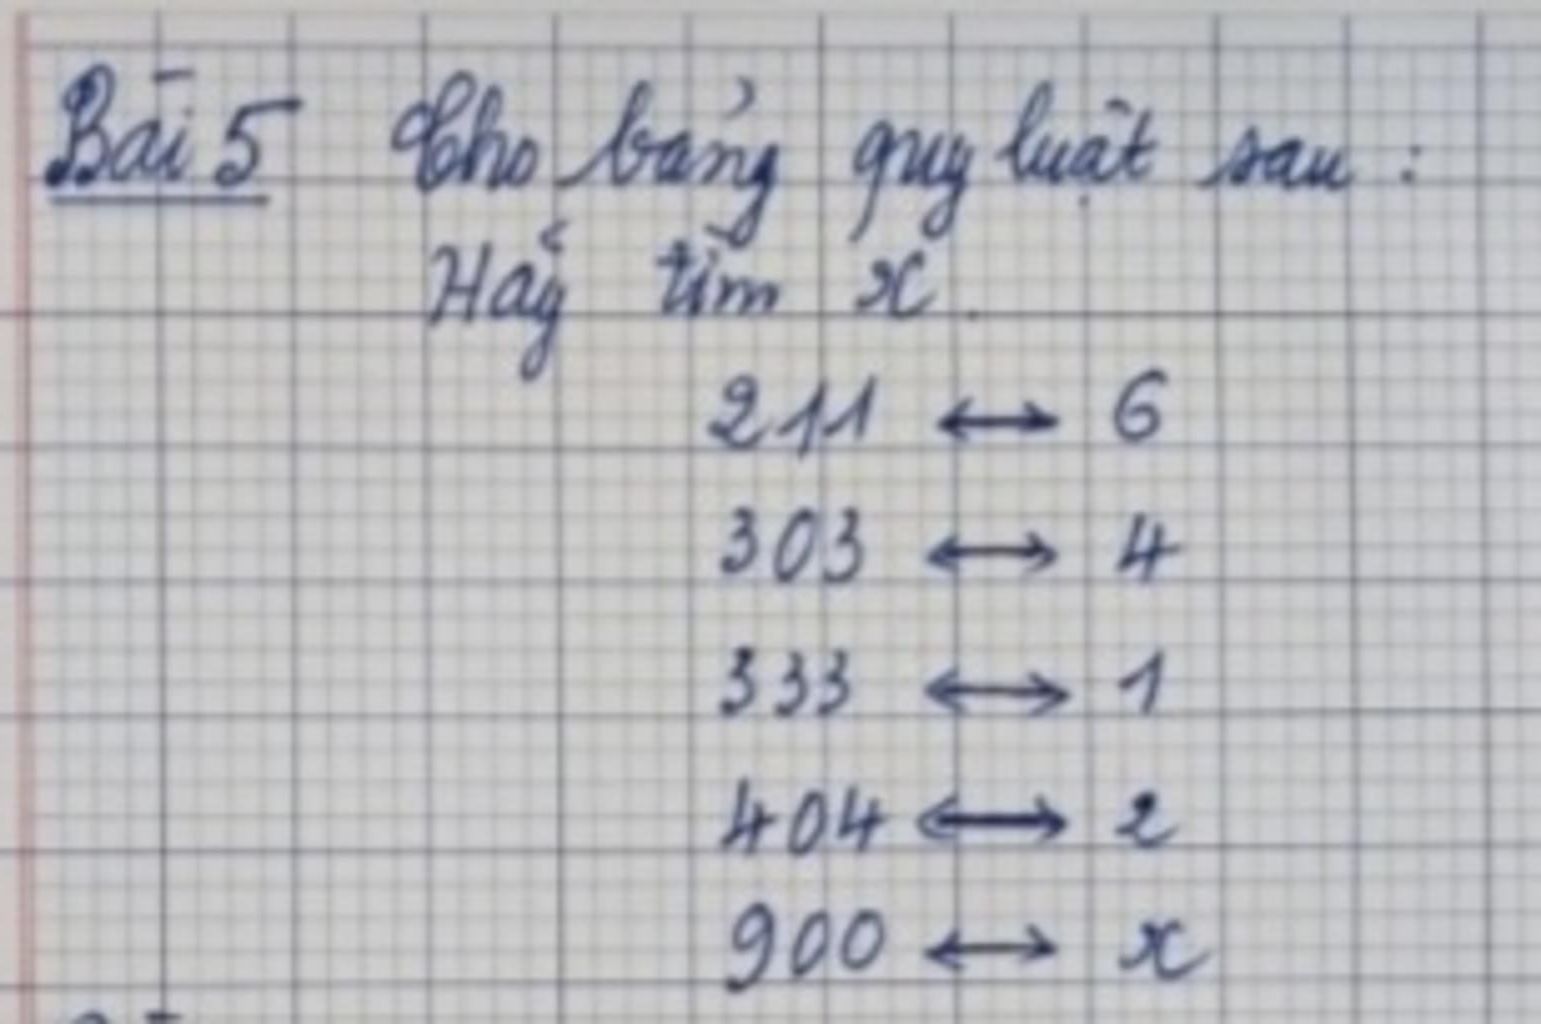 Bài 5 Cho bảng quy luật sau :
Hãy tìm x.
211 ↔ 6
303 ↔ 4
333 ↔ 1
404 ↔ 2
900 ↔ x